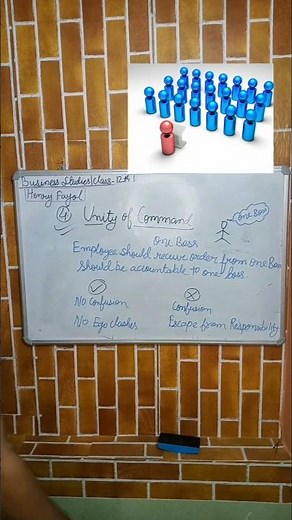 Business Studies/Class-12th
Henry Fayol
④ Unity of Command
one Boss
one Boss
Employee should recive order from one Boss
should be accountable to one boss
No Confusion
Confusion
No Ego clashes
Escape from Responsibility